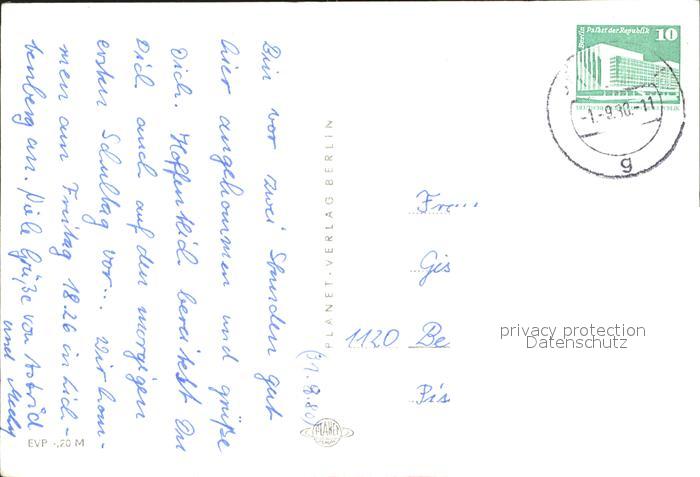 Bin vor zwei Stunden gut
hier angekommen und grüße
Dich. Hoffentlich bereitest Du
Dich auch auf den morgigen
ersten Schultag vor... Wir kom-
men am Freitag 18.26 in Lich-
tenberg an. Viele Grüße von Astrid
und
(31.8.80)
EVP -,20 M
PLANET-VERLAG BERLIN
PLANET
Berlin Palast der Republik 10
-1.-9.80.-11
g
Fr
Gis
1120 Be
Pis
privacy protection
Datenschutz